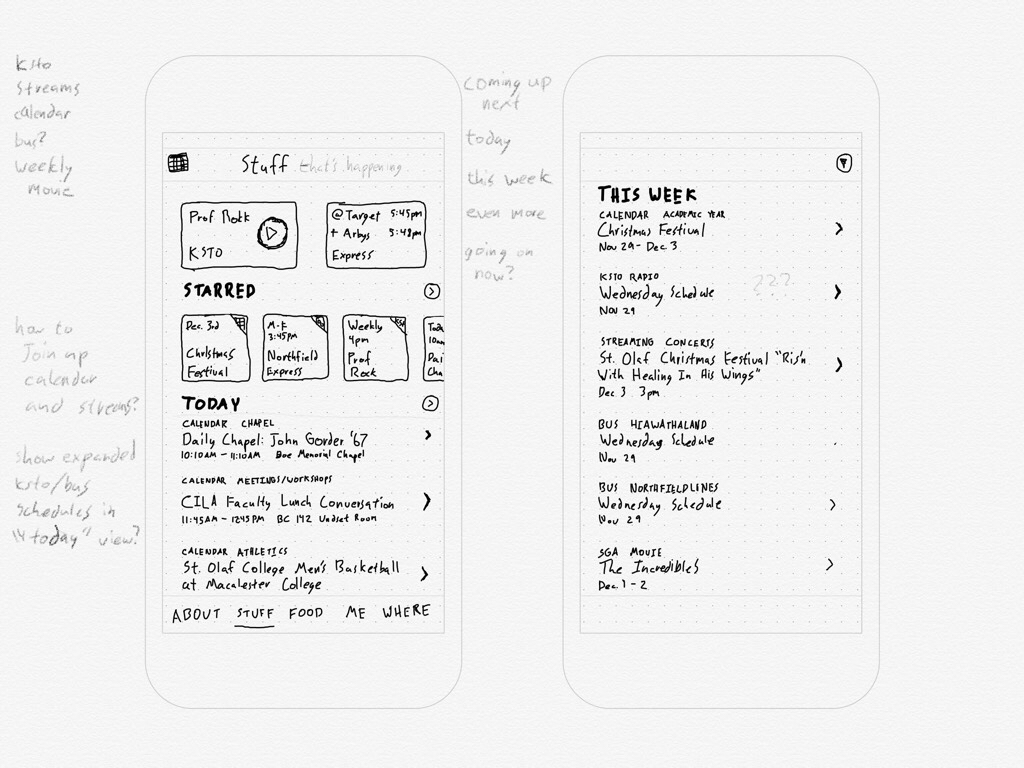 ksto
streams
calendar
bus?
weekly
movie
how to
join up
calendar
and streams?
show expanded
ksto/bus
schedules in
"today" view?
Stuff that's happening
Prof Rokk
KSTO
@ Target 5:45pm
+ Arbys 5:48pm
Express
STARRED
Dec. 3rd
Christmas
Festival
M-F
3:45pm
Northfield
Express
Weekly
4pm
Prof
Rock
Toda
10am
Dai
Cha
TODAY
CALENDAR CHAPEL
Daily Chapel: John Gorder '67
10:10AM - 11:10AM Boe Memorial Chapel
CALENDAR MEETINGS/WORKSHOPS
CILA Faculty Lunch Conversation
11:45AM - 1245PM BC 142 Undset Room
CALENDAR ATHLETICS
St. Olaf College Men's Basketball
at Macalester College
ABOUT STUFF FOOD ME WHERE
coming up
next
today
this week
even more
going on
now?
THIS WEEK
CALENDAR ACADEMIC YEAR
Christmas Festival
Nov 29 - Dec. 3
KSTO RADIO
Wednesday Schedule ???
NOV 29
STREAMING CONCERTS
St. Olaf Christmas Festival "Ris'n
With Healing In His Wings"
Dec 3 3pm
BUS HIAWATHALAND
Wednesday Schedule
Nov 29
BUS NORTHFIELDLINES
Wednesday Schedule
Nov 29
SGA MOVIE
The Incredibles
Dec. 1 - 2